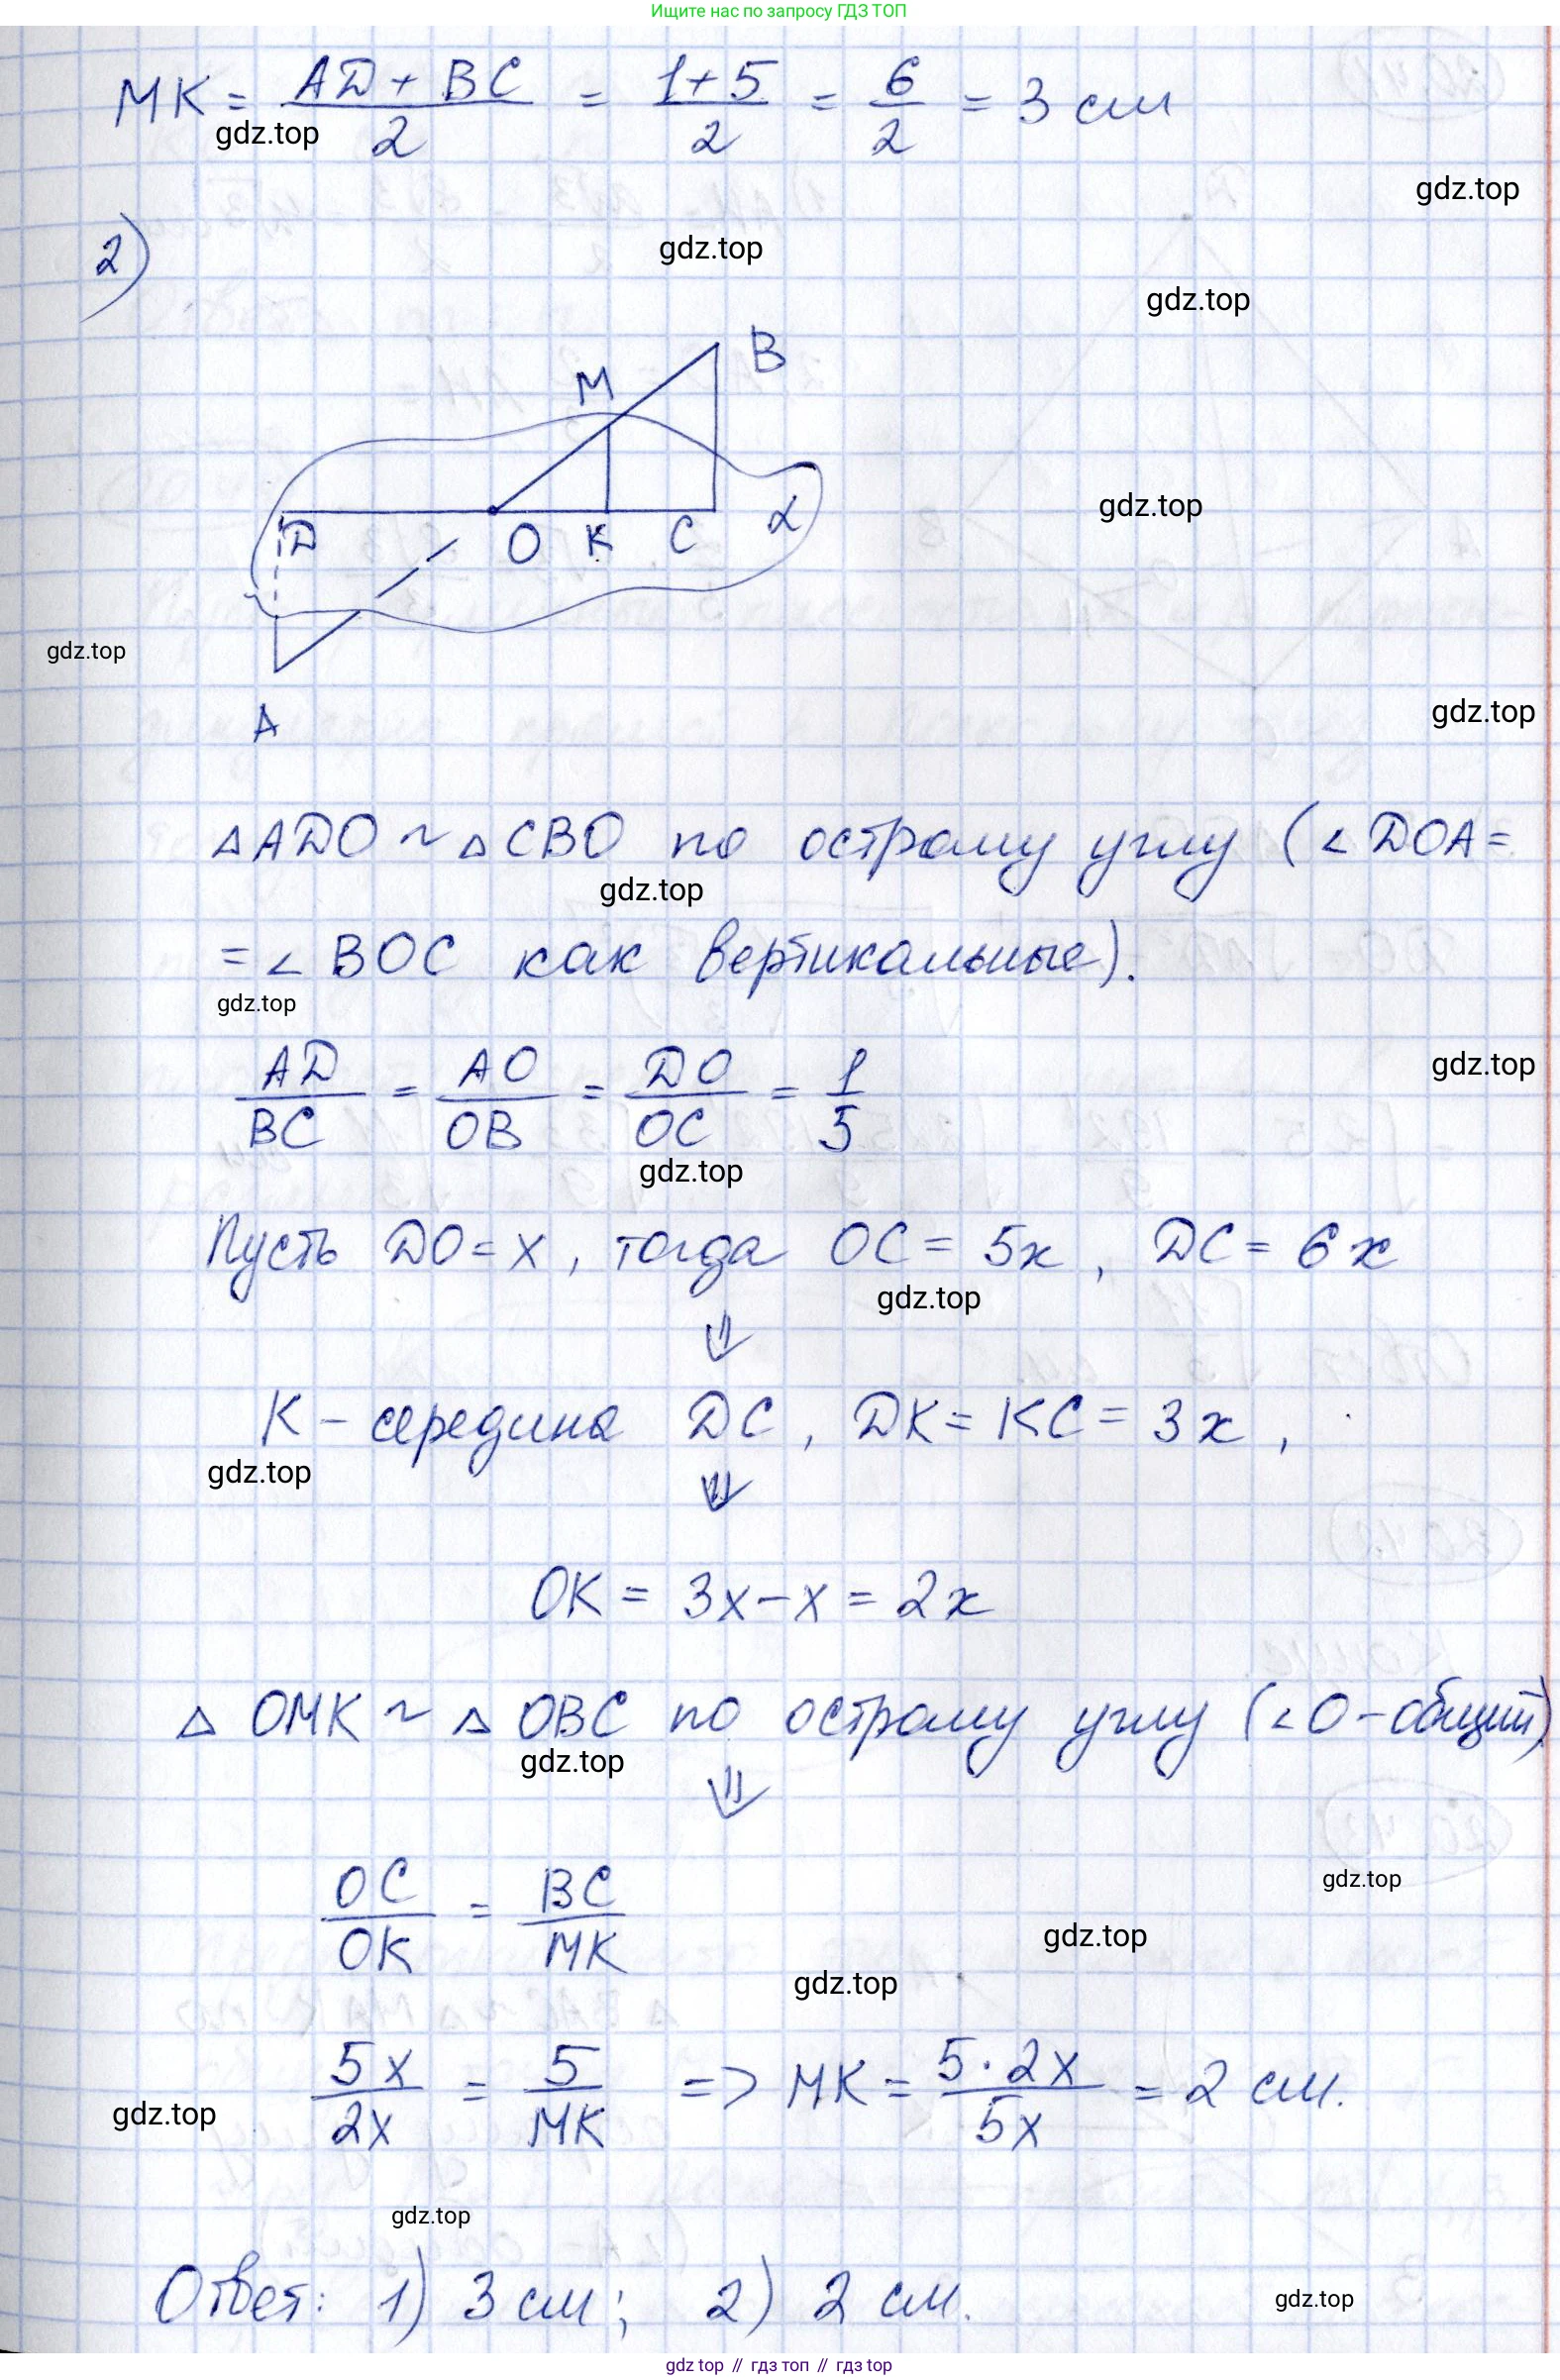 Ищите нас по запросу ГДЗ ТОП
MK = (AD + BC)/2 = (1+5)/2 = 6/2 = 3 см
gdz.top
gdz.top
2)
gdz.top
gdz.top
B
M
gdz.top
D O K C α
gdz.top
A
gdz.top
△ADO ~ △CBO по острому углу (∠DOA=
gdz.top
= ∠BOC как вертикальные).
gdz.top
AD/BC = AO/OB = DO/OC = 1/5
gdz.top
gdz.top
Пусть DO = x, тогда OC = 5x, DC = 6x
gdz.top
⇓
K – середина DC, DK = KC = 3x,
gdz.top
⇓
OK = 3x – x = 2x
△ OMK ~ △ OBC по острому углу (∠O – общий)
gdz.top
⇓
OC/OK = BC/MK
gdz.top
gdz.top
gdz.top
5x/2x = 5/MK => MK = 5·2x/5x = 2 см.
gdz.top
gdz.top
Ответ: 1) 3 см; 2) 2 см.
gdz.top
gdz top // гдз топ // гдз top